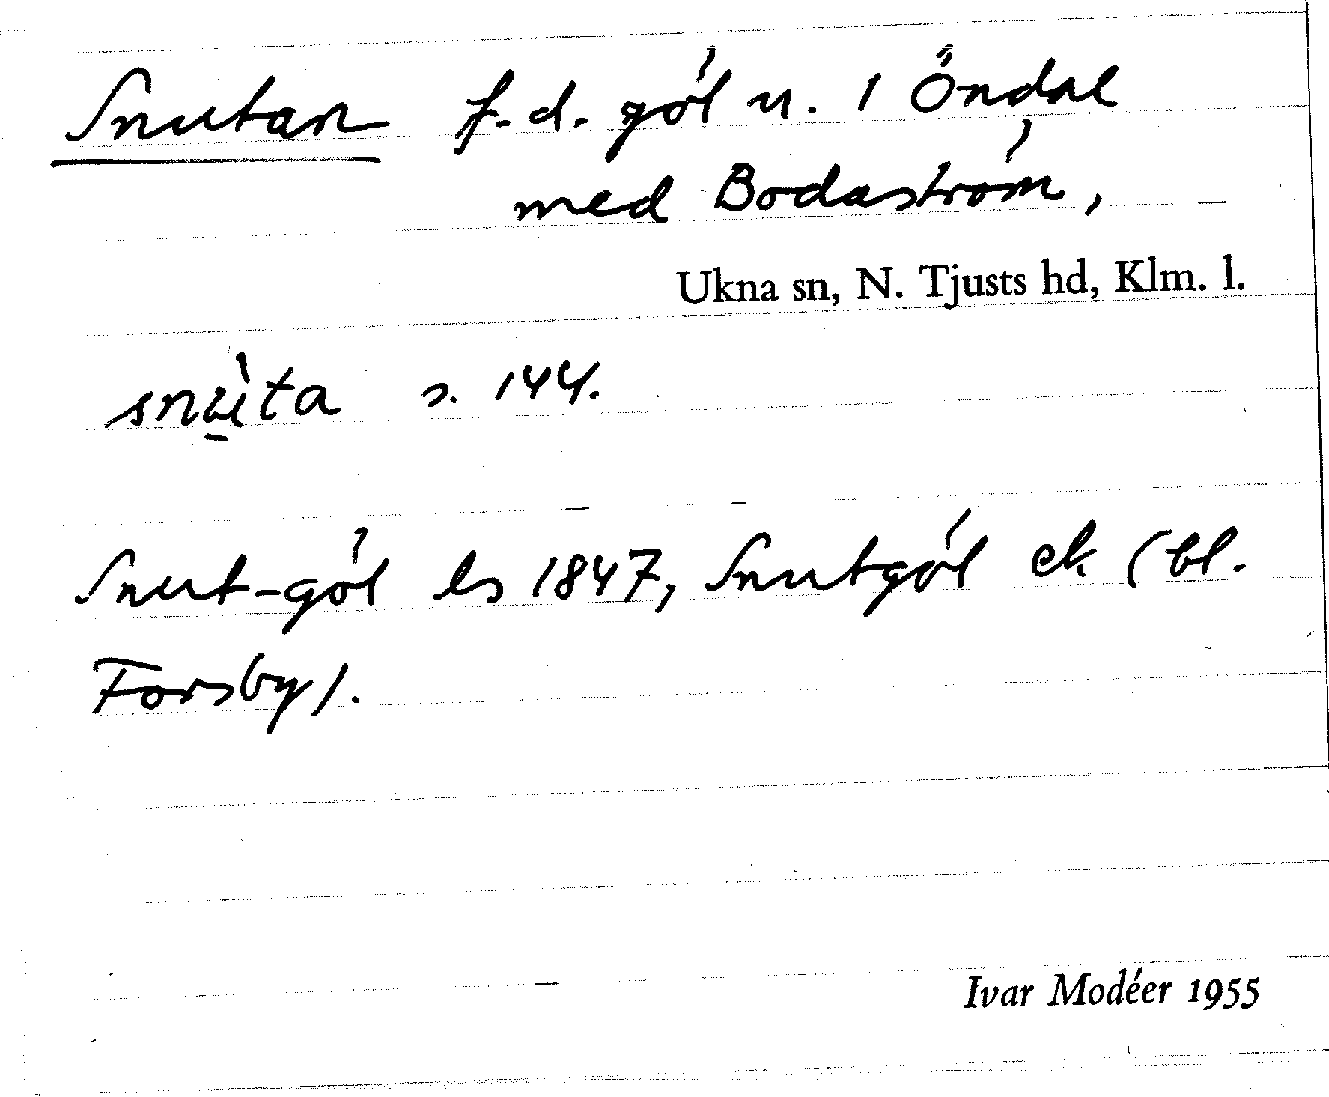 Snutan f.d. göl u. 1 Öndal
med Bodaström,
Ukna sn, N. Tjusts hd, Klm. l.
snù̱ta s. 144.
Snut-göl ls 1847, Snutgöl ek (bl.
Forsby).
Ivar Modéer 1955